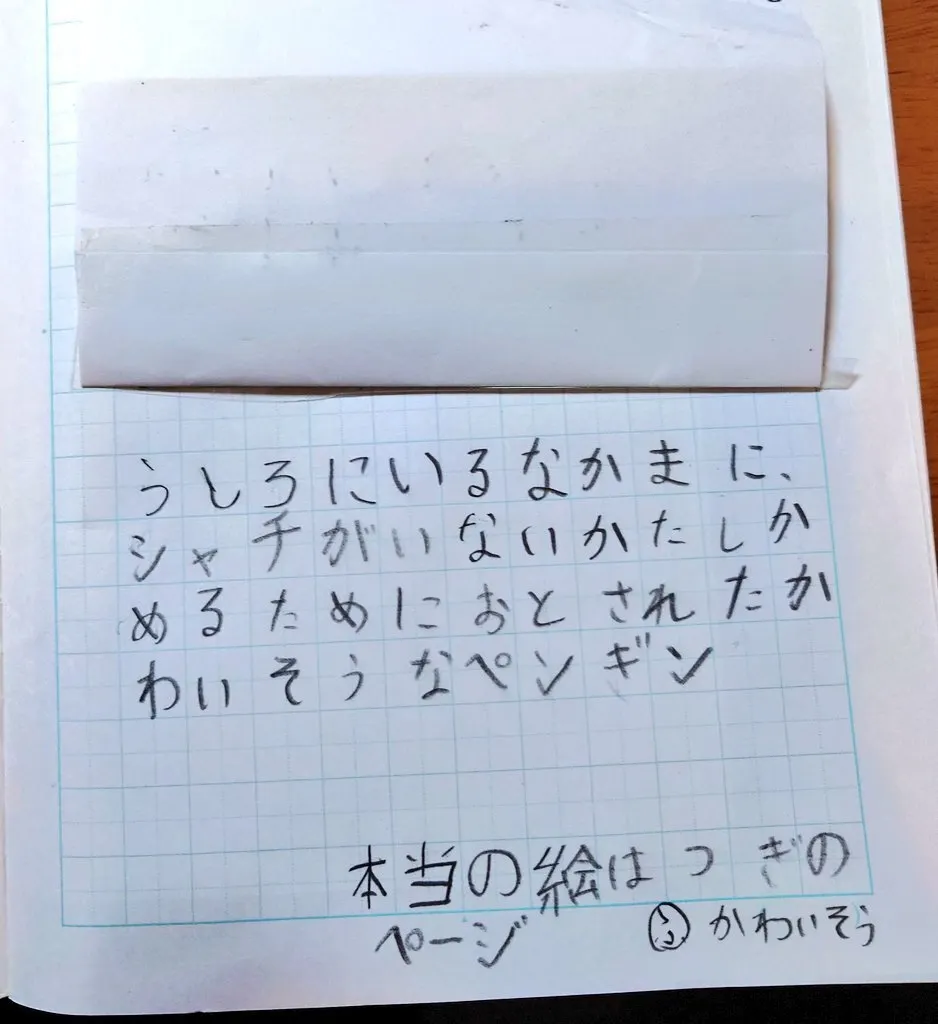 うしろにいるなかまに、
シャチがいないかたしか
めるためにおとされたか
わいそうなペンギン
本当の絵はつぎの
ページ
かわいそう